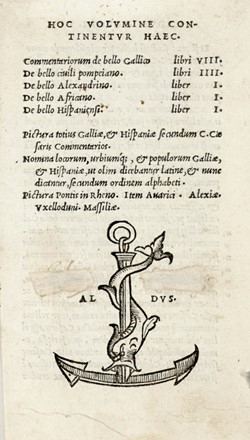 HOC VOLVMINE CON-
TINENTVR HAEC.
Commentariorum de bello Gallico libri VIII.
De bello ciuili pompeiano. libri IIII.
De bello Alexandrino. liber I.
De bello Africano. liber I.
De bello Hispaniensi. liber I.
Pictura totius Galliæ, & Hispaniæ secundum C. Cæ
saris Commentarios.
Nomina locorum, urbiumq;, & populorum Galliæ,
& Hispaniæ, ut olim dicebantur latine, & nunc
dicantur, secundum ordinem alphabeti.
Pictura Pontis in Rheno. Item Auarici. Alexiæ.
Vxelloduni. Massiliæ.
AL DVS.